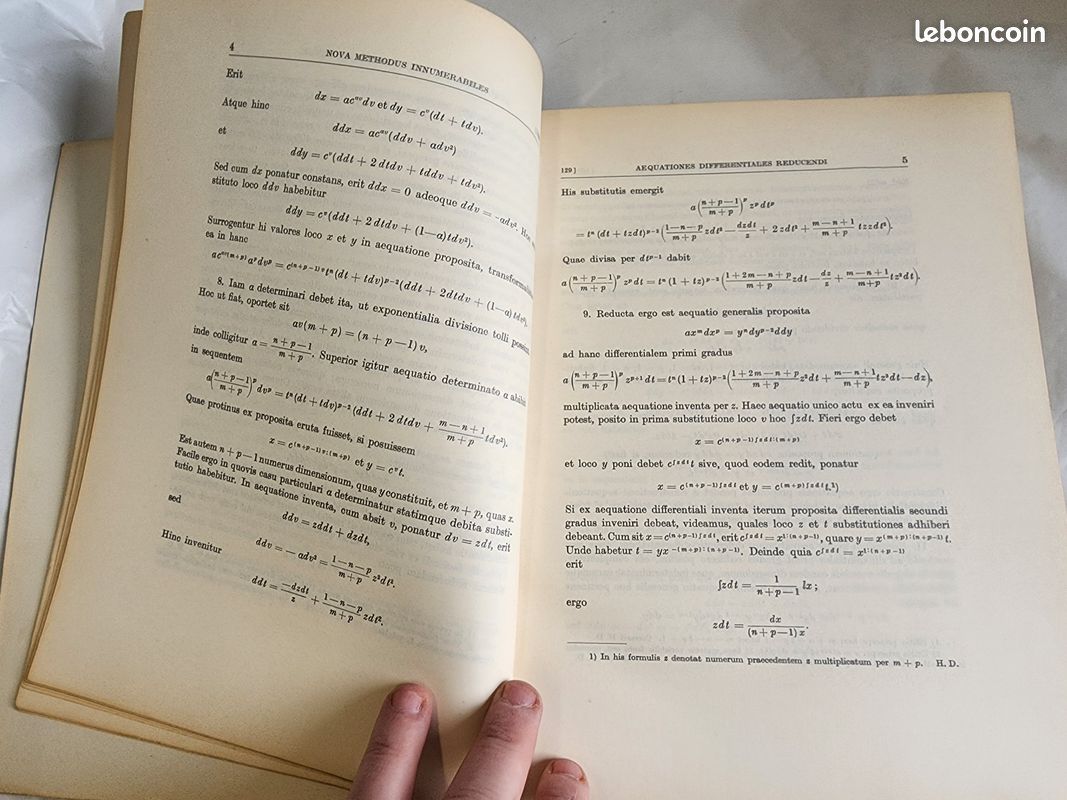 leboncoin
4 NOVA METHODUS INNUMERABILES
Erit
dx = ac^{av}dv et dy = c^v(dt + tdv).
Atque hinc
ddx = ac^{av}(ddv + adv²)
et
ddy = c^v(ddt + 2 dtdv + tddv + tdv²).
Sed cum dx ponatur constans, erit ddx = 0 adeoque ddv = -adv². Hoc
stituto loco ddv habebitur
ddy = c^v(ddt + 2 dtdv + (1—a)tdv²).
Surrogentur hi valores loco x et y in aequatione proposita,
ea in hanc
ac^{av(m+p)}a^pdv^p = c^{(n+p-1)v}t^n(dt + tdv)^{p-2}(ddt + 2dtdv + (1—a)tdv²).
8. Iam a determinari debet ita, ut exponentialia divisione tolli
Hoc ut fiat, oportet sit
av(m + p) = (n + p — 1) v,
inde colligitur a = \frac{n+p-1}{m+p}. Superior igitur aequatio determinato a abibit
in sequentem
a(\frac{n+p-1}{m+p})^p dv^p = t^n(dt + tdv)^{p-2}(ddt + 2 dtdv + \frac{m-n+1}{m+p}tdv²).
Quae protinus ex proposita eruta fuisset, si posuissem
x = c^{(n+p-1)v:(m+p)} et y = c^vt.
Est autem n + p — 1 numerus dimensionum, quas y constituit, et m + p, quas x.
Facile ergo in quovis casu particulari a determinatur statimque debita substi-
tutio habebitur. In aequatione inventa, cum absit v, ponatur dv = zdt, erit
ddv = zddt + dzdt,
sed
ddv = — adv² = \frac{1-n-p}{m+p}z²dt².
Hinc invenitur
ddt = \frac{-dzdt}{z} + \frac{1-n-p}{m+p}zdt².
129] AEQUATIONES DIFFERENTIALES REDUCENDI 5
His substitutis emergit
a(\frac{n+p-1}{m+p})^p z^pdt^p
= t^n(dt + tzdt)^{p-2}(\frac{1-n-p}{m+p}zdt² — \frac{dzdt}{z} + 2zdt² + \frac{m-n+1}{m+p}tzzdt²).
Quae divisa per dt^{p-1} dabit
a(\frac{n+p-1}{m+p})^p z^pdt = t^n(1 + tz)^{p-2}(\frac{1+2m-n+p}{m+p}zdt — \frac{dz}{z} + \frac{m-n+1}{m+p}tz²dt).
9. Reducta ergo est aequatio generalis proposita
ax^mdx^p = y^ndy^{p-2}ddy
ad hanc differentialem primi gradus
a(\frac{n+p-1}{m+p})^p z^{p+1}dt = t^n(1 + tz)^{p-2}(\frac{1+2m-n+p}{m+p}z²dt + \frac{m-n+1}{m+p}tz³dt — dz),
multiplicata aequatione inventa per z. Haec aequatio unico actu ex ea inveniri
potest, posito in prima substitutione loco v hoc ∫zdt. Fieri ergo debet
x = c^{(n+p-1)∫zdt:(m+p)}
et loco y poni debet c^{∫zdt}t sive, quod eodem redit, ponatur
x = c^{(n+p-1)∫zdt} et y = c^{(m+p)∫zdt}t.¹)
Si ex aequatione differentiali inventa iterum proposita differentialis secundi
gradus inveniri debeat, videamus, quales loco z et t substitutiones adhiberi
debeant. Cum sit x = c^{(n+p-1)∫zdt}, erit c^{∫zdt} = x^{1:(n+p-1)}, quare y = x^{(m+p):(n+p-1)} t.
Unde habetur t = yx^{-(m+p):(n+p-1)}. Deinde quia c^{∫zdt} = x^{1:(n+p-1)}
erit
∫zdt = \frac{1}{n+p-1} lx;
ergo
zdt = \frac{dx}{(n+p-1)x}.
1) In his formulis z denotat numerum praecedentem z multiplicatum per m + p. H. D.